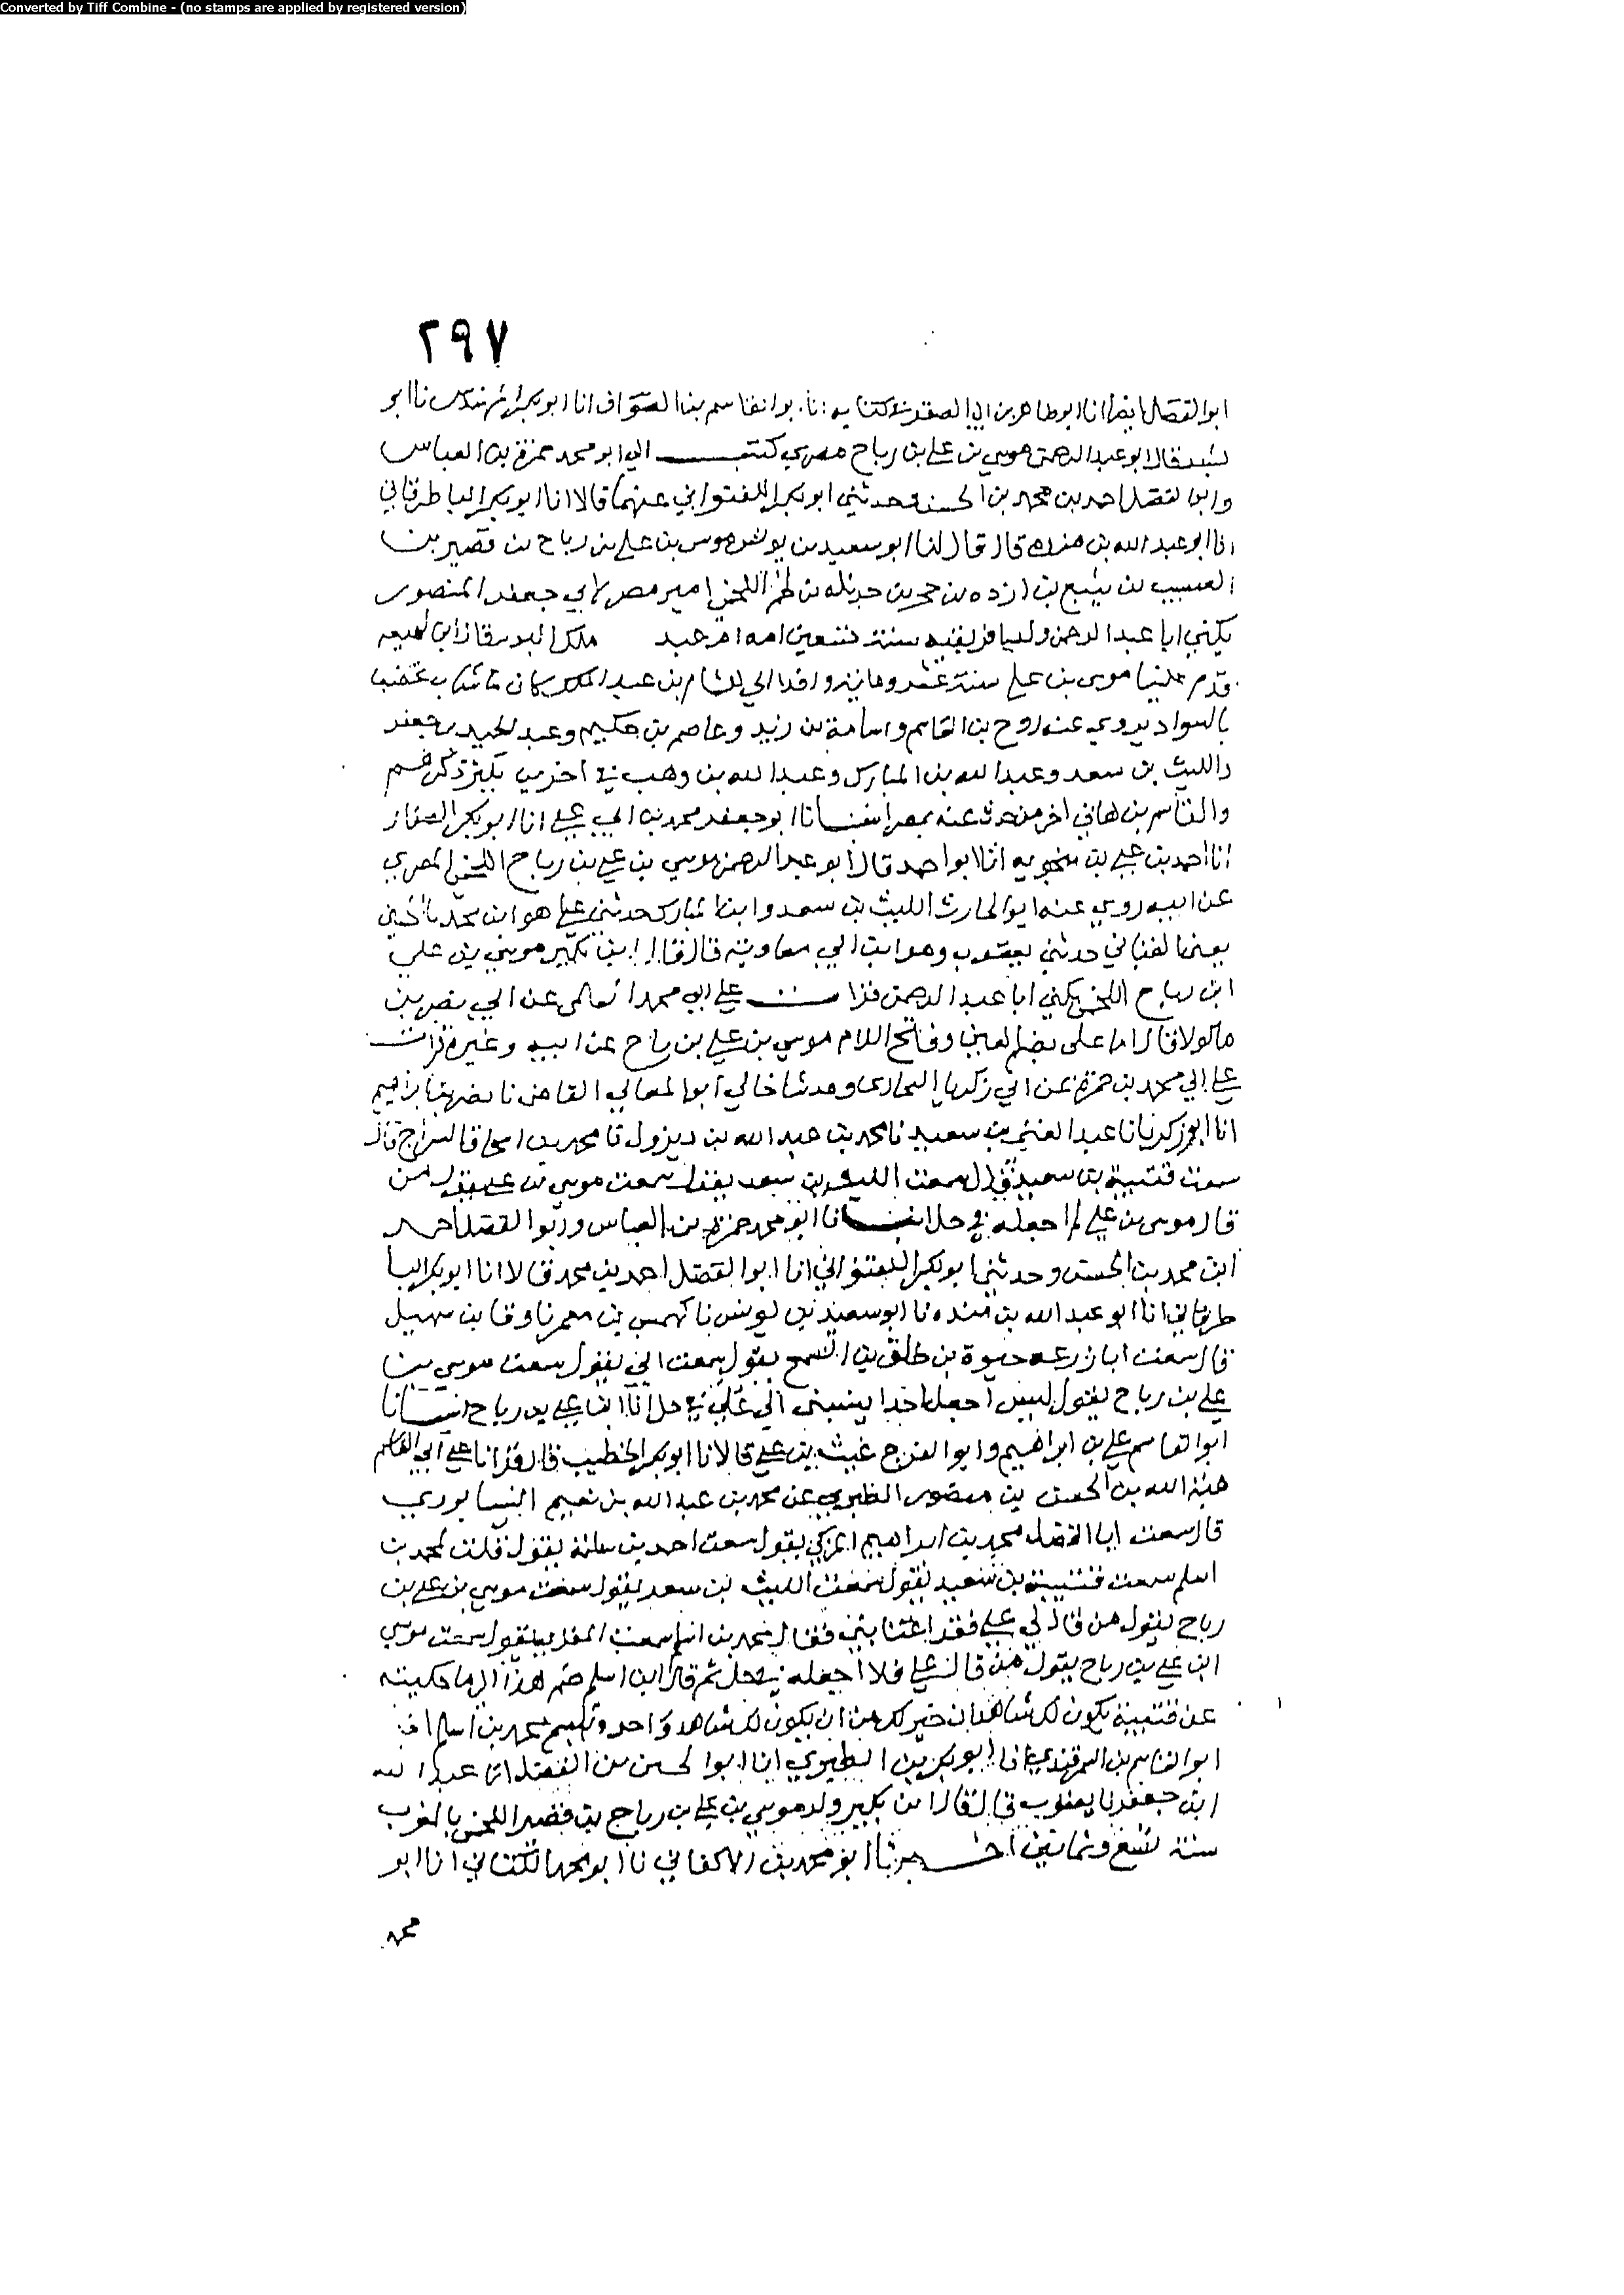 Converted by Tiff Combine - (no stamps are applied by registered version)
٢٩٧
ابو الفضل ايضا انا ابو طاهر بن ابي الصقر نا ابو القاسم بن الصواف انا ابو بكر المهندس نا ابو
بشر قال ابو عبد الرحمن موسى بن علي بن رباح مصري كتب الي ابو محمد حمزة بن العباس
وابو الفضل احمد بن محمد بن الحسن وحدثني ابو بكر اللفتواني عنهما قالا انا ابو بكر الباطرقاني
انا ابو عبد الله بن منده قال قال لنا ابو سعيد بن يونس موسى بن علي بن رباح بن قصير بن
القشيب بن يثيع بن ارده بن حجر بن جزيله بن لخم اللخمي امير مصر لابي جعفر المنصور
يكنى ابا عبد الرحمن ولد بافريقيه سنة تسعين امه ام ولد قال ابن لهيعه
قدم علينا موسى بن علي سنة عشر ومايه وافدا الى هشام بن عبد الملك وكان شاب يخضب
بالسواد يروي عنه روح بن القاسم واسامة بن زيد وعاصم بن حكيم وعبد الحميد بن جعفر
والليث بن سعد وعبد الله بن المبارك وعبد الله بن وهب في اخرين يكثر ذكرهم
والقاسم بن هاني اخر من حدث عنه بمصر انبانا ابو جعفر محمد بن ابي علي انا ابو بكر الصفار
انا احمد بن علي بن منجويه انا ابو احمد قال ابو عبد الرحمن موسى بن علي بن رباح اللخمي المصري
عن ابيه روى عنه ابو الحارث الليث بن سعد وابن المبارك حدثني علي هو ابن محمد نا
حدثني يعقوب وهو ابن ابي معاوية قال قال ابن بكير موسى بن علي
ابن رباح اللخمي يكنى ابا عبد الرحمن قرات على ابي محمد السلمي عن ابي نصر بن
ماكولا قال اما علي بضم العين وفتح اللام موسى بن علي بن رباح عن ابيه وغيره قرات
على ابي محمد بن حمزة عن ابي زكريا البخاري وحدثنا خالي ابو المعالي القاضي نا نصر بن ابراهيم
انا ابو زكريا نا عبد الغني بن سعيد نا محمد بن عبد الله بن نا محمد بن اسحاق السراج قال
سمعت قتيبة بن سعيد يقول سمعت الليث بن سعد يقول سمعت موسى بن علي يقول من
قال موسى بن علي لم اجعله في حل انبانا ابو محمد حمزة بن العباس وابو الفضل احمد
ابن محمد بن الحسن وحدثني ابو بكر اللفتواني انا ابو الفضل احمد بن محمد قالا انا ابو بكر البا
طرقاني انا ابو عبد الله بن منده نا ابو سعيد بن يونس نا كهمس بن معمر نا وفا بن سهيل
قال سمعت ابا زرعه حيوة بن طلق بن السمح يقول سمعت ابي يقول سمعت موسى بن
علي بن رباح يقول ليس اجعل احدا ينسبني الى علي في حل انا ابن علي بن رباح انبانا
ابو القاسم علي بن ابراهيم وابو الفرج غيث بن علي قالا نا ابو بكر الخطيب قال قرانا على ابي القاسم
هبة الله بن الحسن بن منصور الطبري عن محمد بن عبد الله بن نعيم النيسابوري
قال سمعت ابا الفضل محمد بن ابراهيم المزكي يقول سمعت احمد بن سلمة يقول قلت لمحمد بن
اسلم سمعت قتيبة بن سعيد يقول سمعت الليث بن سعد يقول سمعت موسى بن علي بن
رباح يقول من قال لي علي فقد اغتابني فقال محمد بن اسلم سمعت المقري يقول سمعت موسى
ابن علي بن رباح يقول من قال علي فلا اجعله في حل ثم قال ابن اسلم ضم هذا الى ما حكيته
عن قتيبة يكون لك شاهدان خير لك من ان يكون لك شاهد واحد وتبسم محمد بن اسلم
ابو القاسم بن السمرقندي انا ابو بكر بن الطبري انا ابو الحسين بن الفضل انا عبد الله
ابن جعفر نا يعقوب قال قال ابن بكير ولد موسى بن علي بن رباح بن قصير اللخمي بالمغرب
سنة تسع وثمانين اخبرنا ابو محمد بن الاكفاني نا ابو محمد الكتاني انا ابو
محمد